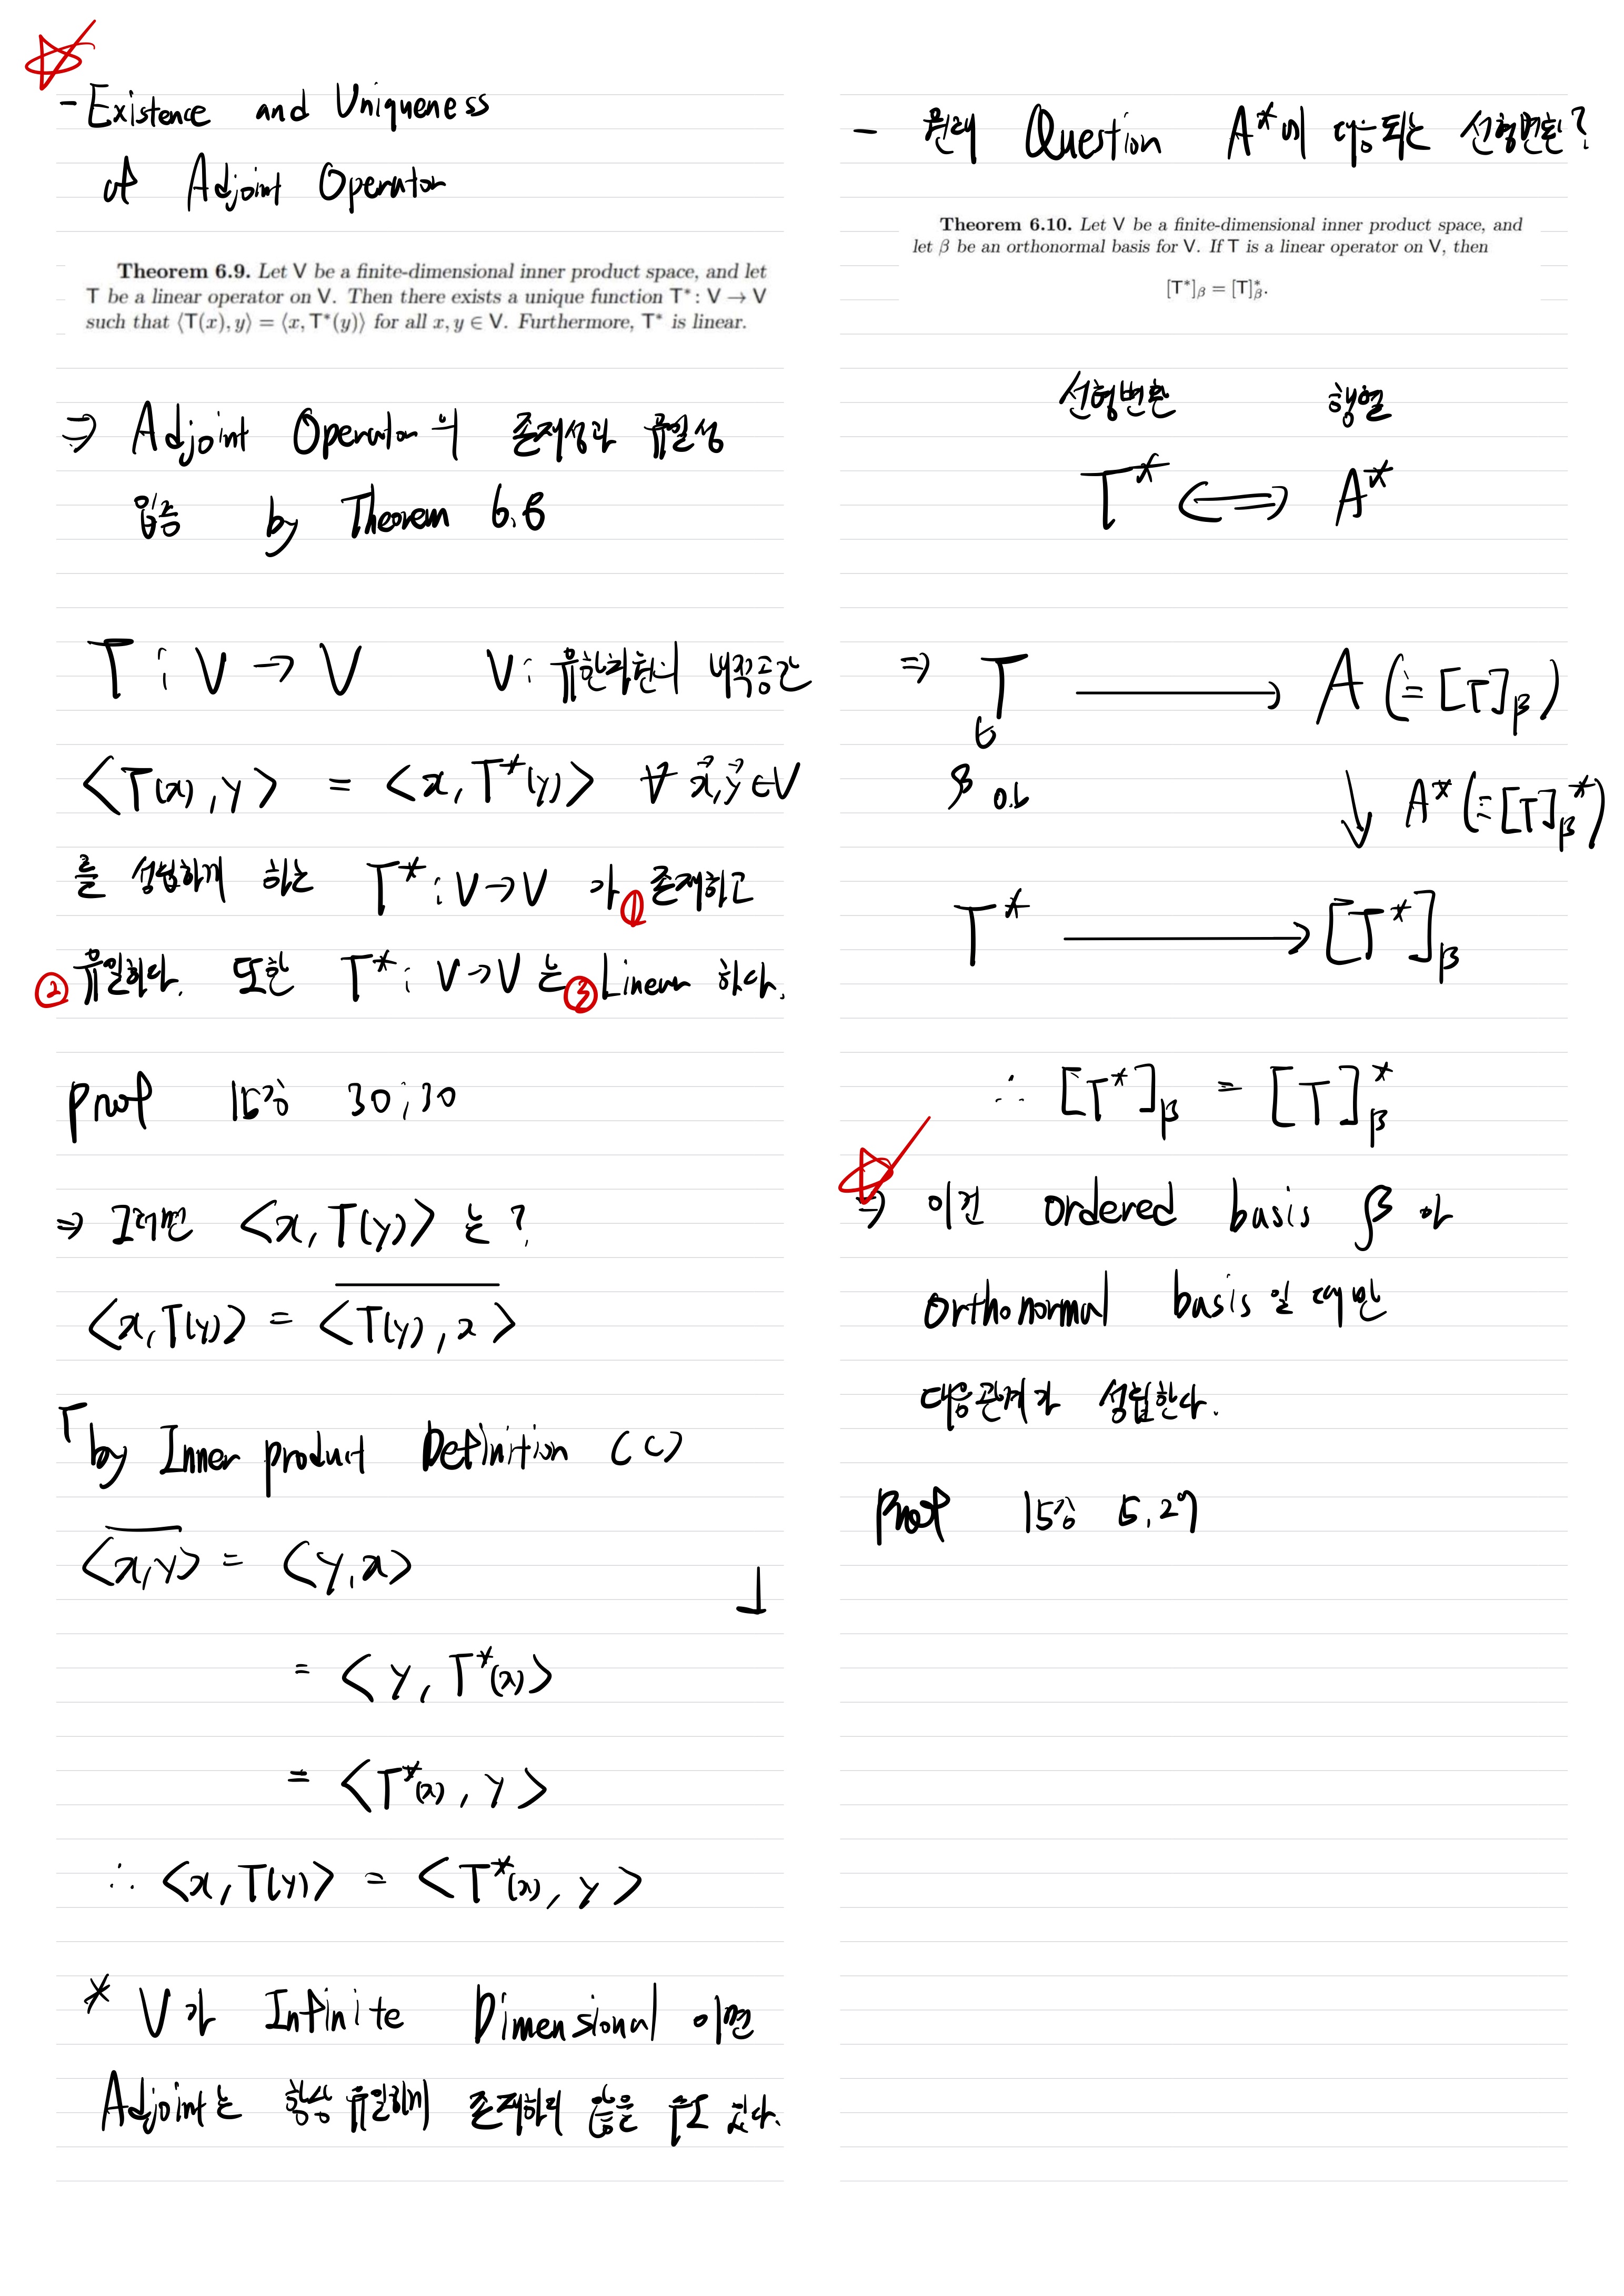 - Existence and Uniqueness
of Adjoint Operator
Theorem 6.9. Let V be a finite-dimensional inner product space, and let
T be a linear operator on V. Then there exists a unique function T*: V → V
such that ⟨T(x), y⟩ = ⟨x, T*(y)⟩ for all x, y ∈ V. Furthermore, T* is linear.
⇒ Adjoint Operator의 존재성과 유일성
입증 by Theorem 6.8
T : V → V V : 유한차원의 내적공간
<T(x), y> = <x, T*(y)> ∀ x⃗, y⃗ ∈ V
를 성립하게 하는 T* : V → V 가 ① 존재하고
② 유일하다. 또한 T* : V → V 는 ③ Linear 하다.
proof 15강 30:30
⇒ 그러면 <x, T(y)> 는?
<x, T(y)> = \overline{<T(y), x>}
「by Inner product Definition (c)
\overline{<x, y>} = <y, x> 」
= <y, T*(x)>
= <T*(x), y>
∴ <x, T(y)> = <T*(x), y>
* V가 Infinite Dimensional 이면
Adjoint는 항상 유일하게 존재하지 않을 수도 있다.
- 원래 Question A*에 대응되는 선형변환?
Theorem 6.10. Let V be a finite-dimensional inner product space, and
let β be an orthonormal basis for V. If T is a linear operator on V, then
[T*]β = [T]*β.
선형변환 행렬
T* ⟺ A*
⇒ T → A (:= [T]β)
β o.b ↓ A* (:= [T]β*)
T* → [T*]β
∴ [T*]β = [T]β*
⇒ 이건 ordered basis β 가
orthonormal basis 일 때만
대응관계가 성립한다.
proof 15강 5,27